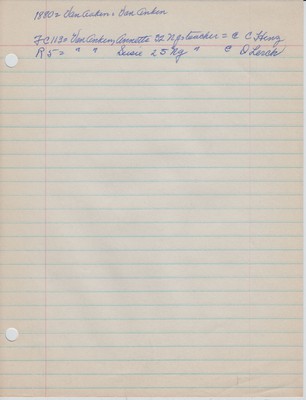 1880 = Van Auken & Van Anken
FC 113 = Van Auken, Annette 22 Ng teacher = @ C Hing
R 5 = " " Susie 25 Ng " @ D Lerch